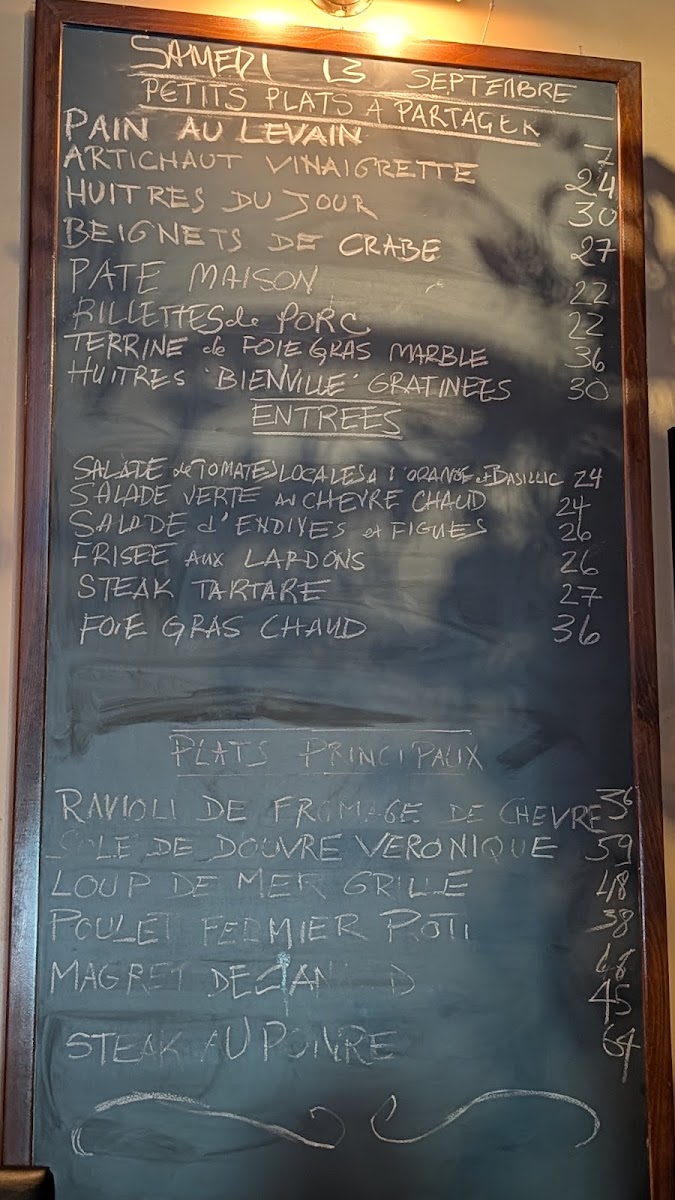 SAMEDI 13 SEPTEMBRE
PETITS PLATS A PARTAGER
PAIN AU LEVAIN 7
ARTICHAUT VINAIGRETTE 24
HUITRES DU JOUR 30
BEIGNETS DE CRABE 27
PATE MAISON 22
RILLETTES de PORC 22
TERRINE de FOIE GRAS MARBLE 36
HUITRES "BIENVILLE" GRATINEES 30
ENTREES
SALADE de TOMATES LOCALES à l'ORANGE et BASILLIC 24
SALADE VERTE au CHEVRE CHAUD 24
SALADE d'ENDIVES et FIGUES 26
FRISEE AUX LARDONS 26
STEAK TARTARE 27
FOIE GRAS CHAUD 36
PLATS PRINCIPAUX
RAVIOLI DE FROMAGE DE CHEVRE 36
SOLE DE DOUVRE VERONIQUE 59
LOUP DE MER GRILLE 48
POULET FERMIER ROTI 38
MAGRET DE 45
STEAK AU POIVRE 64